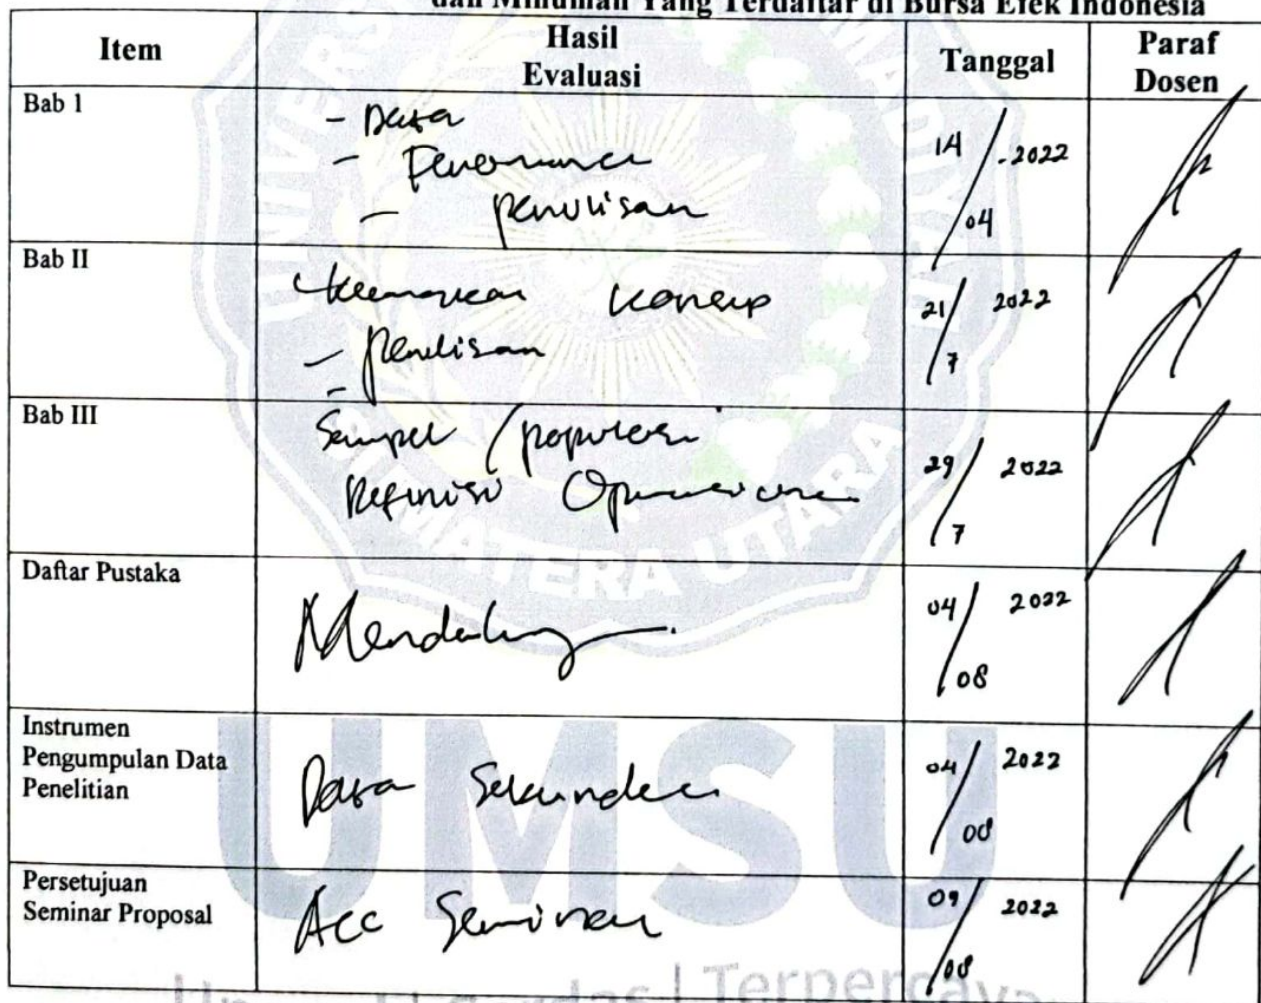 dan Minuman Yang Terdaftar di Bursa Efek Indonesia
Item
Hasil
Evaluasi
Tanggal
Paraf
Dosen
Bab 1
- Data
- Fenomena
- penulisan
14/04 - 2022
Bab II
Kerangka Konsep
- penulisan
21/7 2022
Bab III
Sampel / populasi
Definisi Operasional
29/7 2022
Daftar Pustaka
Mendeley
04/08 2022
Instrumen
Pengumpulan Data
Penelitian
Data Sekunder
04/08 2022
Persetujuan
Seminar Proposal
Acc Seminar
09/08 2022
SUMATERA UTARA
UMSU
Unggul | Cerdas | Terpercaya